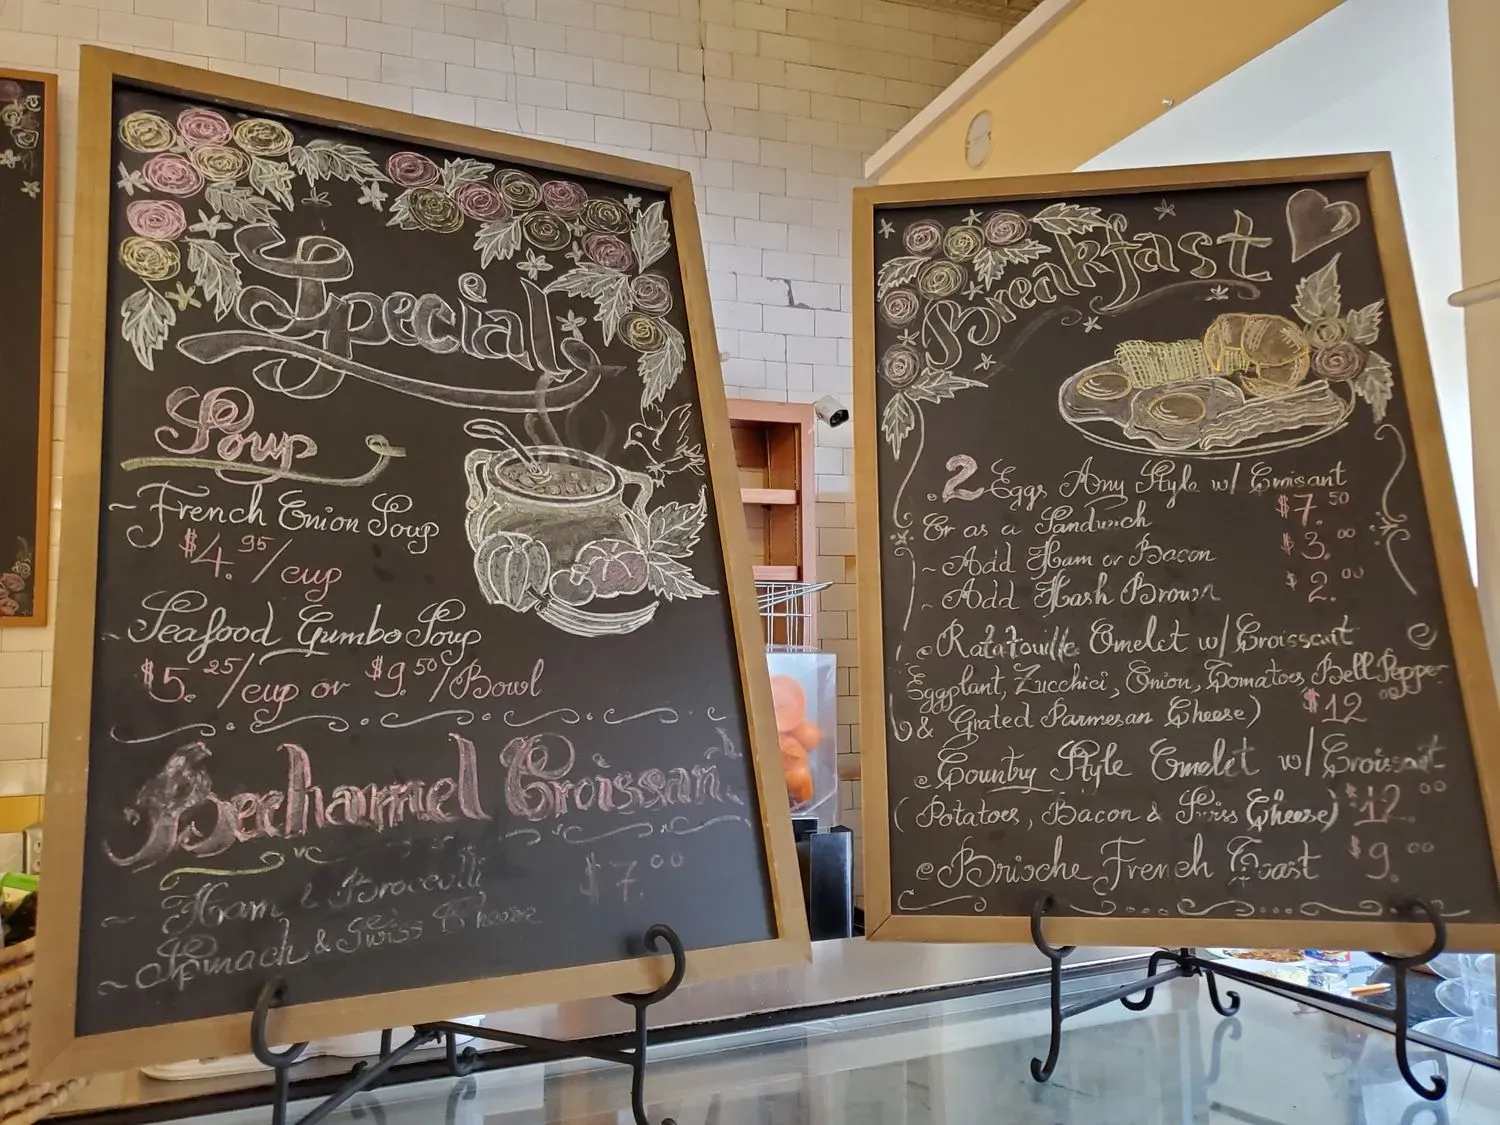 Special
Soup
~ French Onion Soup
$4.95/cup
~ Seafood Gumbo Soup
$5.25/cup or $9.50/Bowl
Bechamel Croissant
~ Ham & Broccolli $7.00
~ Spinach & Swiss Cheese
Breakfast
. 2 Eggs Any Style w/ Croisant
$7.50
Or as a Sandwich
~ Add Ham or Bacon $3.00
~ Add Hash Brown $2.00
Ratatouille Omelet w/ Croissant
Eggplant, Zucchici, Onion, Tomatoes, Bell Pepper
& Grated Parmesan Cheese) $12.00
Country Style Omelet w/ Croissant
(Potatoes, Bacon & Swiss Cheese) $12.00
Brioche French Toast $9.00